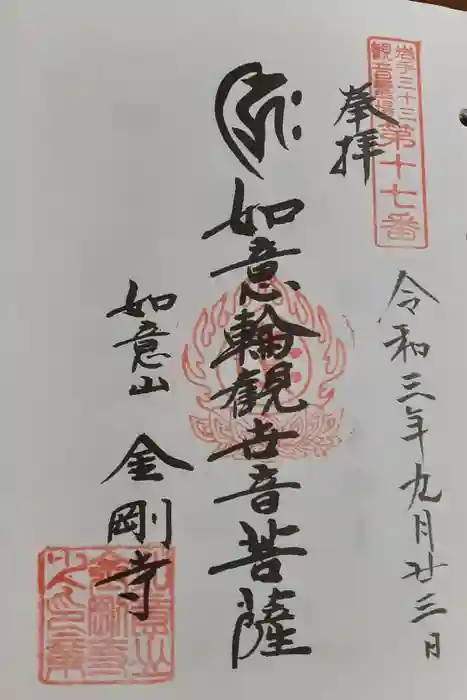 岩手三十三
観音霊場
第十七番
奉拝
令和三年九月廿三日
如意輪観世音菩薩
如意山 金剛寺